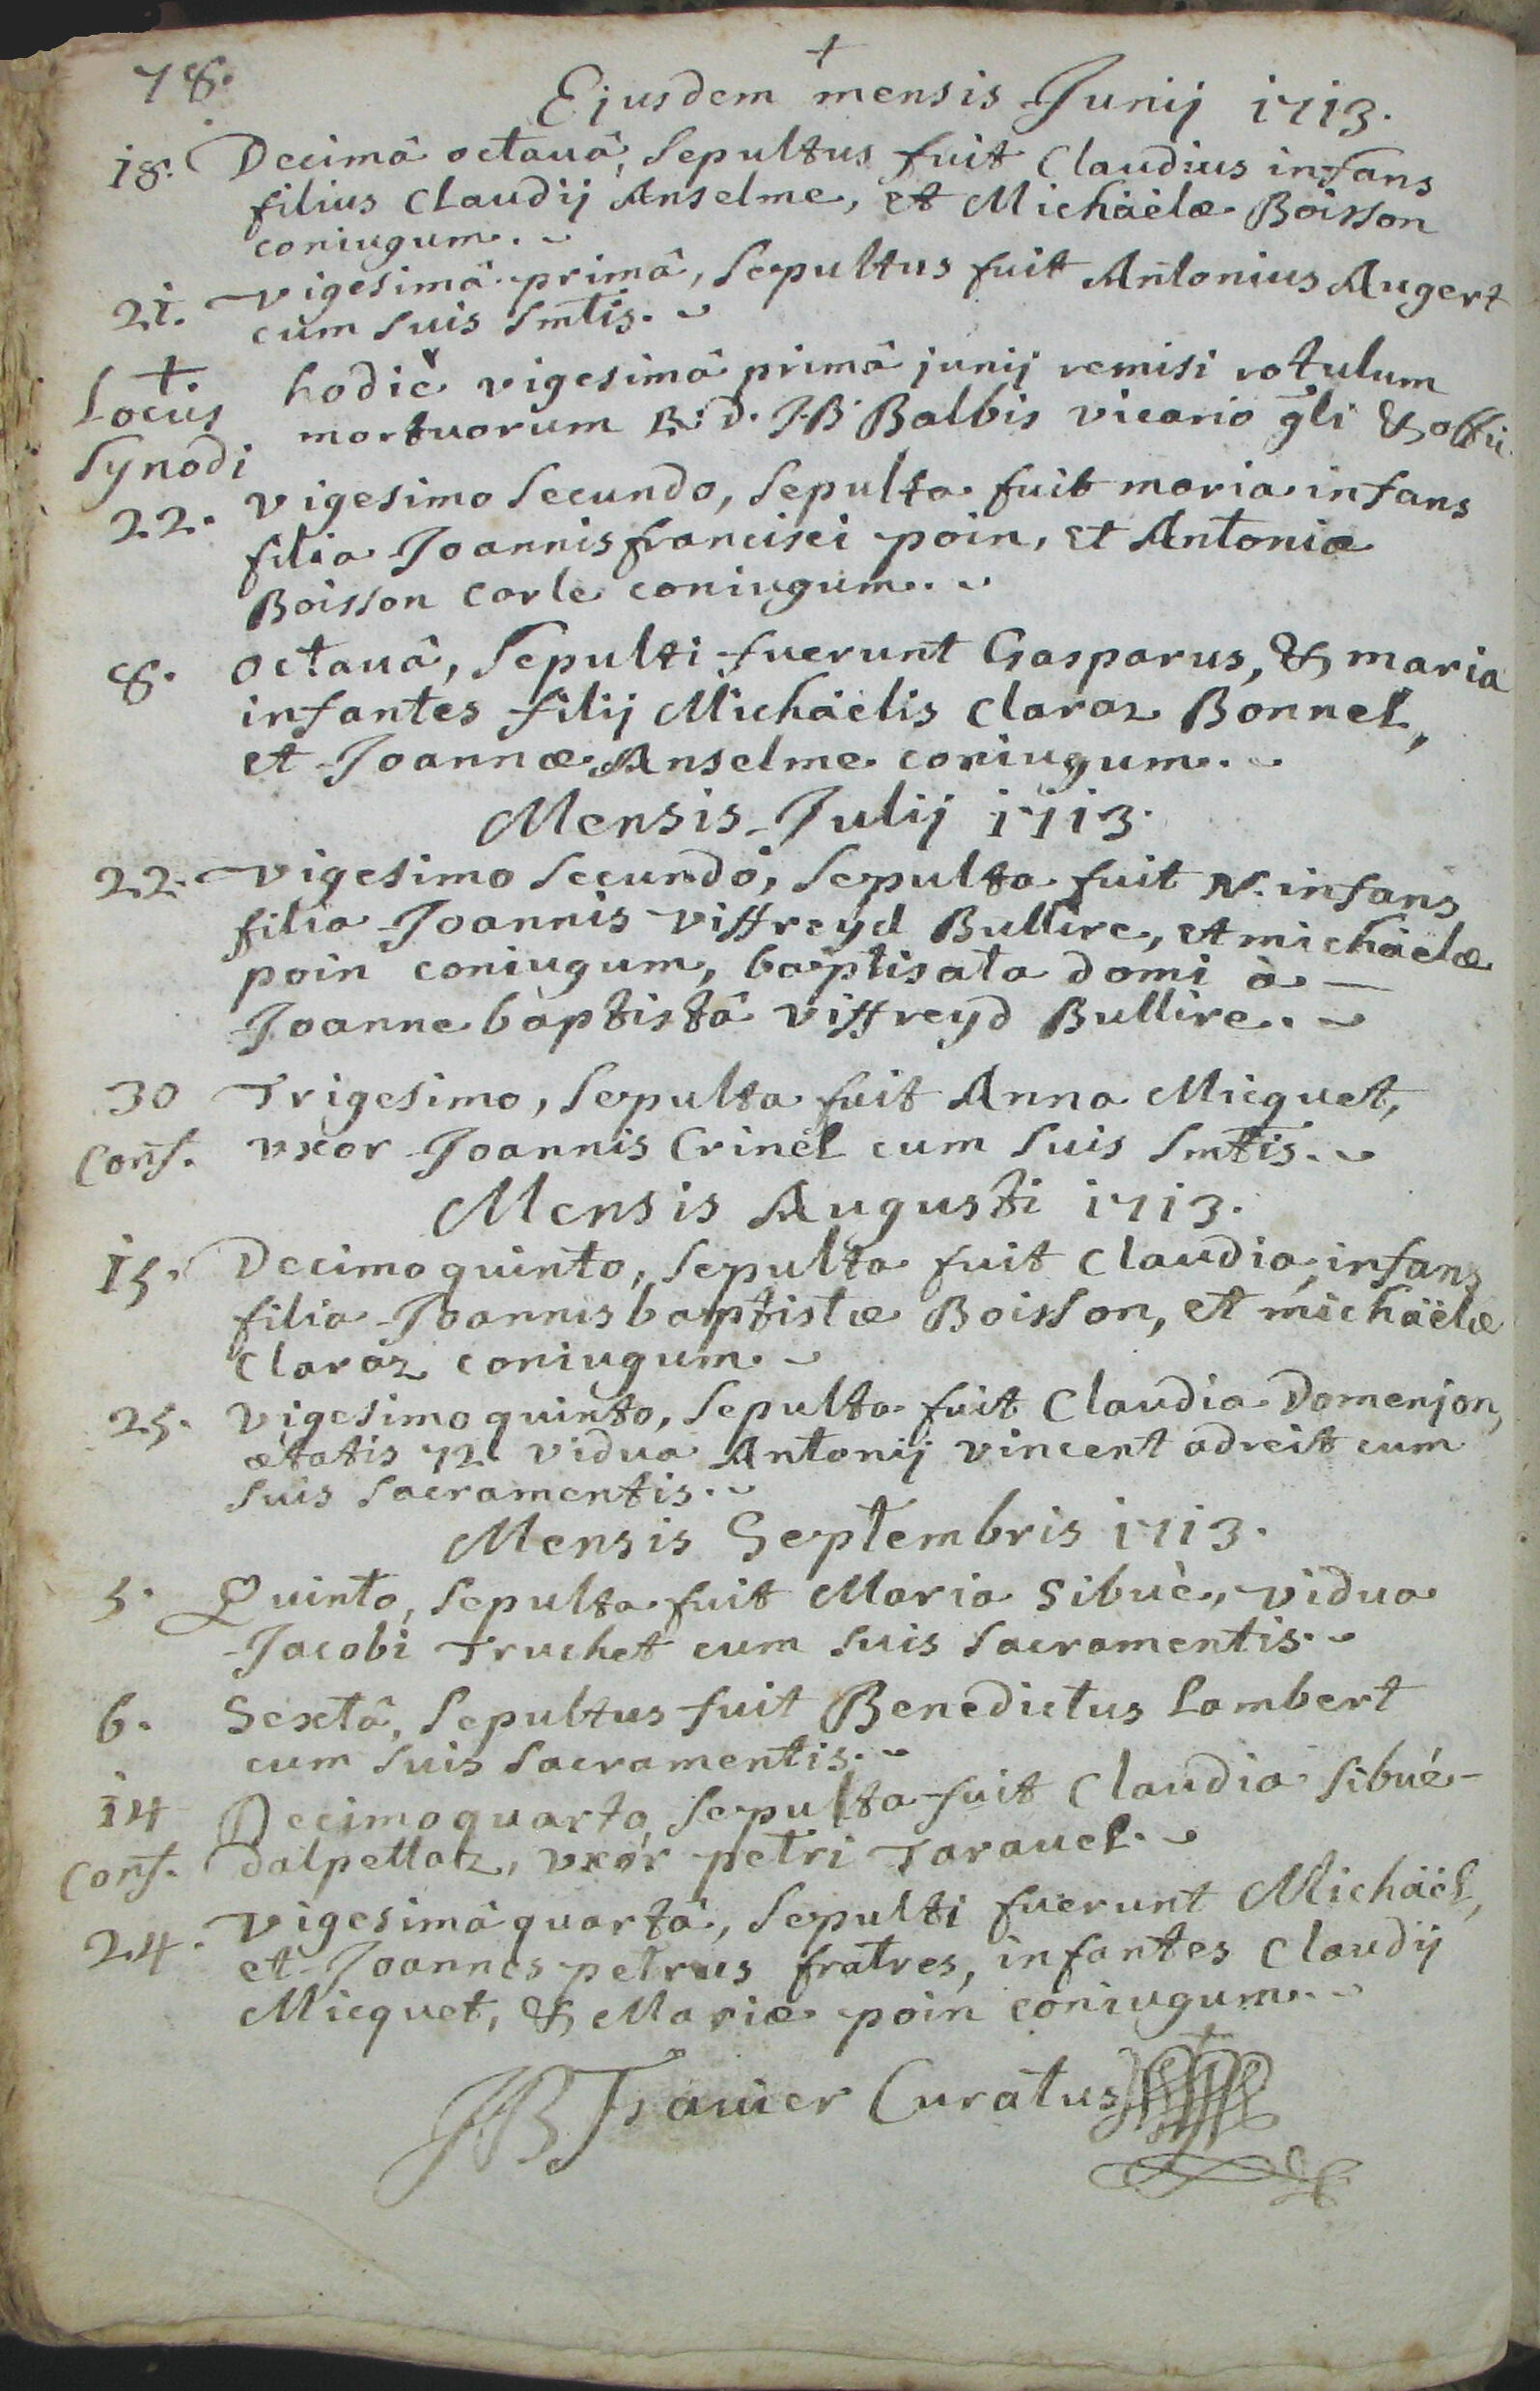 78.
+
Ejusdem mensis Junij 1713.
18. Decimâ octauâ, sepultus fuit Claudius infans
filius Claudij Anselme, et Michäelæ Boisson
coniugum.
21. vigesimâ primâ, sepultus fuit Antonius Augert
cum suis smtis.
+ hodiè vigesimâ primâ junij remisi rotulum
Locus mortuorum R: d. J.B. Balbis vicario gli &
Synodi
22. vigesimo secundo, sepulta fuit maria infans
filia Joannis francisci poin, et Antoniæ
Boisson carle coniugum.
8. octauâ, sepulti fuerunt Gasparus, & maria
infantes filij Michäelis Claraz Bonnel,
et Joannæ Anselme coniugum.
Mensis Julij 1713.
22. vigesimo secundo, sepulta fuit N. infans
filia Joannis viffreyd Bullire, et michäelæ
poin coniugum, baptisata domi à
Joanne baptistâ viffreyd Bullire.
30 Trigesimo, sepulta fuit Anna Micquet,
Conf. vxor Joannis Crinel cum suis smtis.
Mensis Augusti 1713.
15. Decimo quinto, sepulta fuit Claudia, infans
filia Joannis baptistæ Boisson, et michäelæ
Claraz coniugum.
25. vigesimo quinto, sepulta fuit Claudia Domenjon,
ætatis 72 vidua Antonij vincent adreit cum
suis sacramentis.
Mensis Septembris 1713.
5. Quinto, sepulta fuit Maria Sibuè, vidua
Jacobi Truchet cum suis sacramentis.
6. Sextâ, sepultus fuit Benedictus Lambert
cum suis sacramentis.
14 Decimo quarto, sepulta fuit Claudia sibué-
Conf. dalpettaz, vxor petri Tarauel.
24. vigesimâ quartâ, sepulti fuerunt Michäel,
et Joannes petrus fratres, infantes Claudij
Micquet, & Mariæ poin coniugum.
JB Curatus